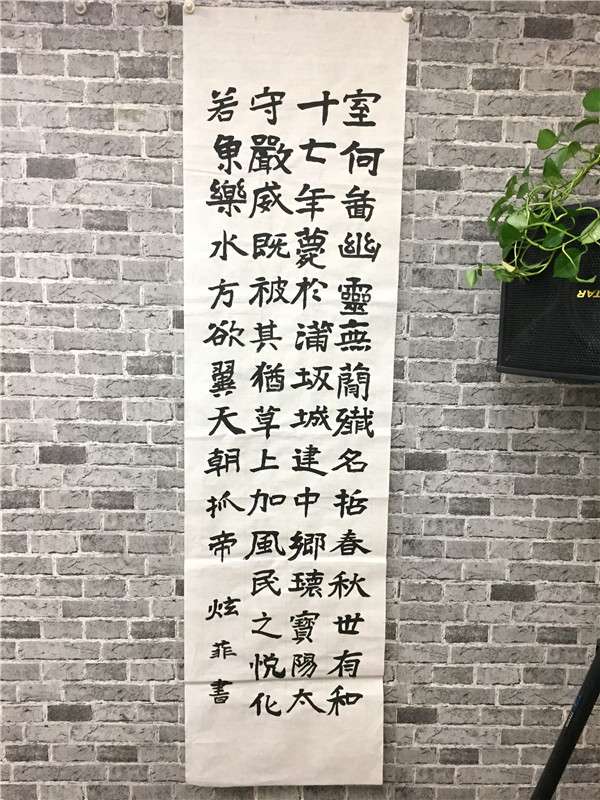 室何啚幽靈無蕳殲名哲春秋世有和
十七年薨於蒲坂城建中鄉瓌寶陽太
守嚴威既被其猶草上加風民之悅化
若魚樂水方欲翼天朝抓帝
炫菲書
STAR